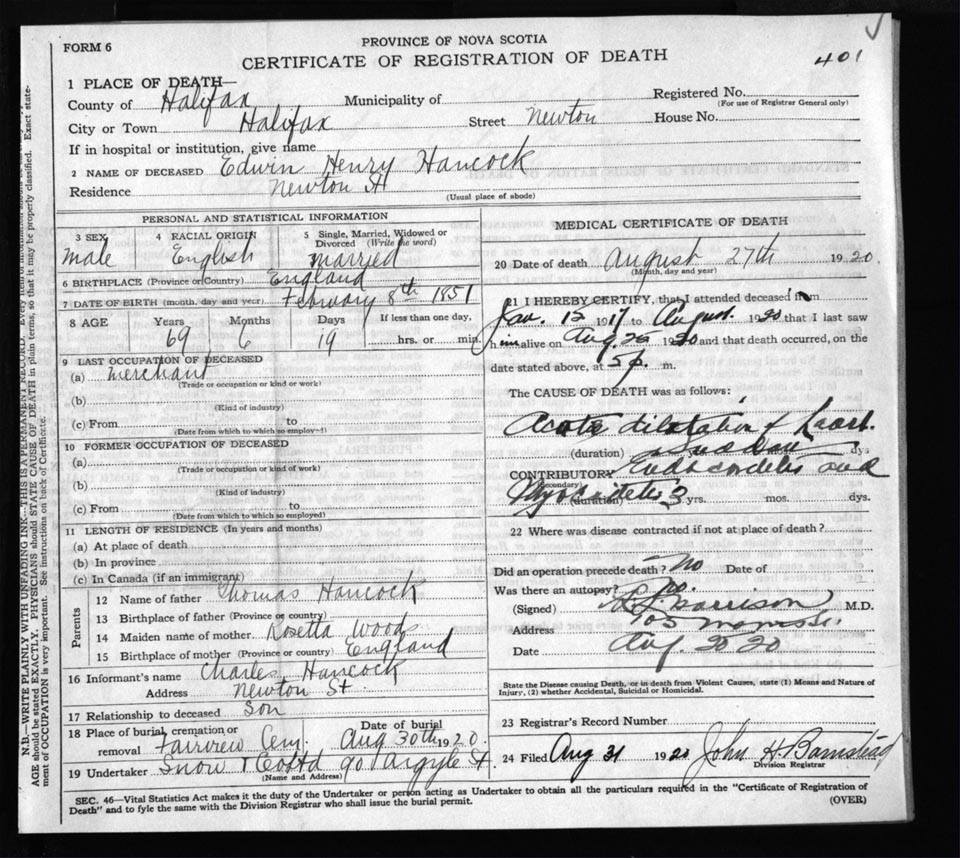 FORM 6
PROVINCE OF NOVA SCOTIA
CERTIFICATE OF REGISTRATION OF DEATH
401
1 PLACE OF DEATH—
County of Halifax Municipality of Registered No.
(For use of Registrar General only)
City or Town Halifax Street Newton House No.
If in hospital or institution, give name
2 NAME OF DECEASED Edwin Henry Hancock
Residence Newton St
(Usual place of abode)
PERSONAL AND STATISTICAL INFORMATION
3 SEX 4 RACIAL ORIGIN 5 Single, Married, Widowed or Divorced (Write the word)
Male English Married
6 BIRTHPLACE (Province or Country) England
7 DATE OF BIRTH (month, day and year) February 8th 1851
8 AGE Years Months Days If less than one day,
69 6 19 hrs. or min.
9 LAST OCCUPATION OF DECEASED
(a) Merchant
(Trade or occupation or kind or work)
(b)
(Kind of industry)
(c) From to
(Date from which to which so employed)
10 FORMER OCCUPATION OF DECEASED
(a)
(Trade or occupation or kind of work)
(b)
(Kind of industry)
(c) From to
(Date from which to which so employed)
11 LENGTH OF RESIDENCE (In years and months)
(a) At place of death
(b) In province
(c) In Canada (if an immigrant)
Parents
12 Name of father Thomas Hancock
13 Birthplace of father (Province or country)
14 Maiden name of mother Rosetta Woods
15 Birthplace of mother (Province or country) England
16 Informant's name Charles Hancock
Address Newton St.
17 Relationship to deceased Son
18 Place of burial, cremation or removal Fairview Cem. Date of burial Aug 30th 1920.
19 Undertaker Snow & Co Ltd 90 Argyle St.
(Name and Address)
MEDICAL CERTIFICATE OF DEATH
20 Date of death August 27th 1920.
(Month, day and year)
21 I HEREBY CERTIFY, that I attended deceased from
12 1917 to August 1920 that I last saw
him alive on Aug 1920 and that death occurred, on the
date stated above, at 5 p. m.
The CAUSE OF DEATH was as follows:
Acute dilatation of heart.
(duration) dys
CONTRIBUTORY Endocarditis and
(Secondary)
Myocarditis (duration) 3 yrs. mos. dys.
22 Where was disease contracted if not at place of death?
Did an operation precede death? No Date of
Was there an autopsy? No.
(Signed) Morrison M.D.
Address
Date Aug. 20
State the Disease causing Death, or in death from Violent Causes, state (1) Means and Nature of
Injury, (2) whether Accidental, Suicidal or Homicidal.
23 Registrar's Record Number
24 Filed Aug 31 1920 John H. Barnstead
Division Registrar
SEC. 46—Vital Statistics Act makes it duty of the Undertaker or person acting as Undertaker to obtain all the particulars required in the "Certificate of Registration of
Death" and to fyle the same with the Division Registrar who shall issue the burial permit.
(OVER)
N.B.—WRITE PLAINLY WITH UNFADING INK—THIS IS A PERMANENT RECORD. Every
AGE should be stated EXACTLY. PHYSICIANS should STATE CAUSE OF DEATH in plain terms, so that it may be properly classified. Exact state-
ment of OCCUPATION is very important. See instructions on back of Certificate.